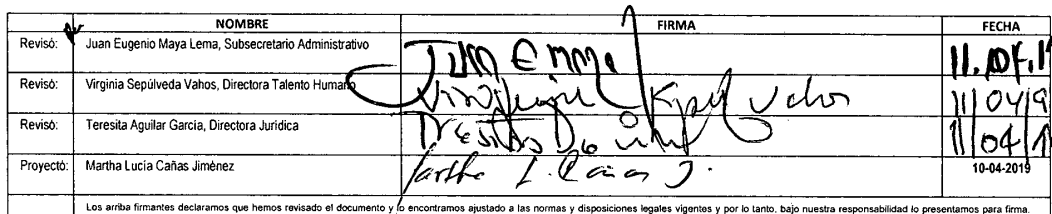 NOMBRE FIRMA FECHA
Revisó: Juan Eugenio Maya Lema, Subsecretario Administrativo
Revisó: Virginia Sepúlveda Vahos, Directora Talento Humano
Revisó: Teresita Aguilar García, Directora Jurídica
Proyectó: Martha Lucía Cañas Jiménez Martha L. Cañas J. 10-04-2019
Los arriba firmantes declaramos que hemos revisado el documento y lo encontramos ajustado a las normas y disposiciones legales vigentes y por lo tanto, bajo nuestra responsabilidad lo presentamos para firma.